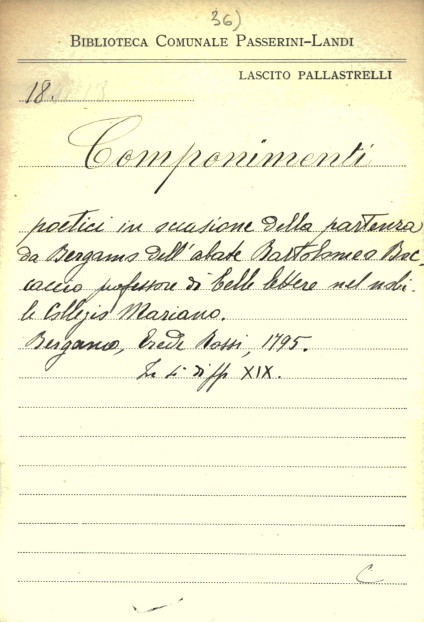 36)
BIBLIOTECA COMUNALE PASSERINI-LANDI
LASCITO PALLASTRELLI
18.
Componimenti
poetici in occasione della partenza
da Bergamo dell'abate Bartolomeo Boc-
caccio professore di belle lettere nel nobi-
le Collegio Mariano.
Bergamo, Erede Rossi, 1795.
di pp XIX.
C